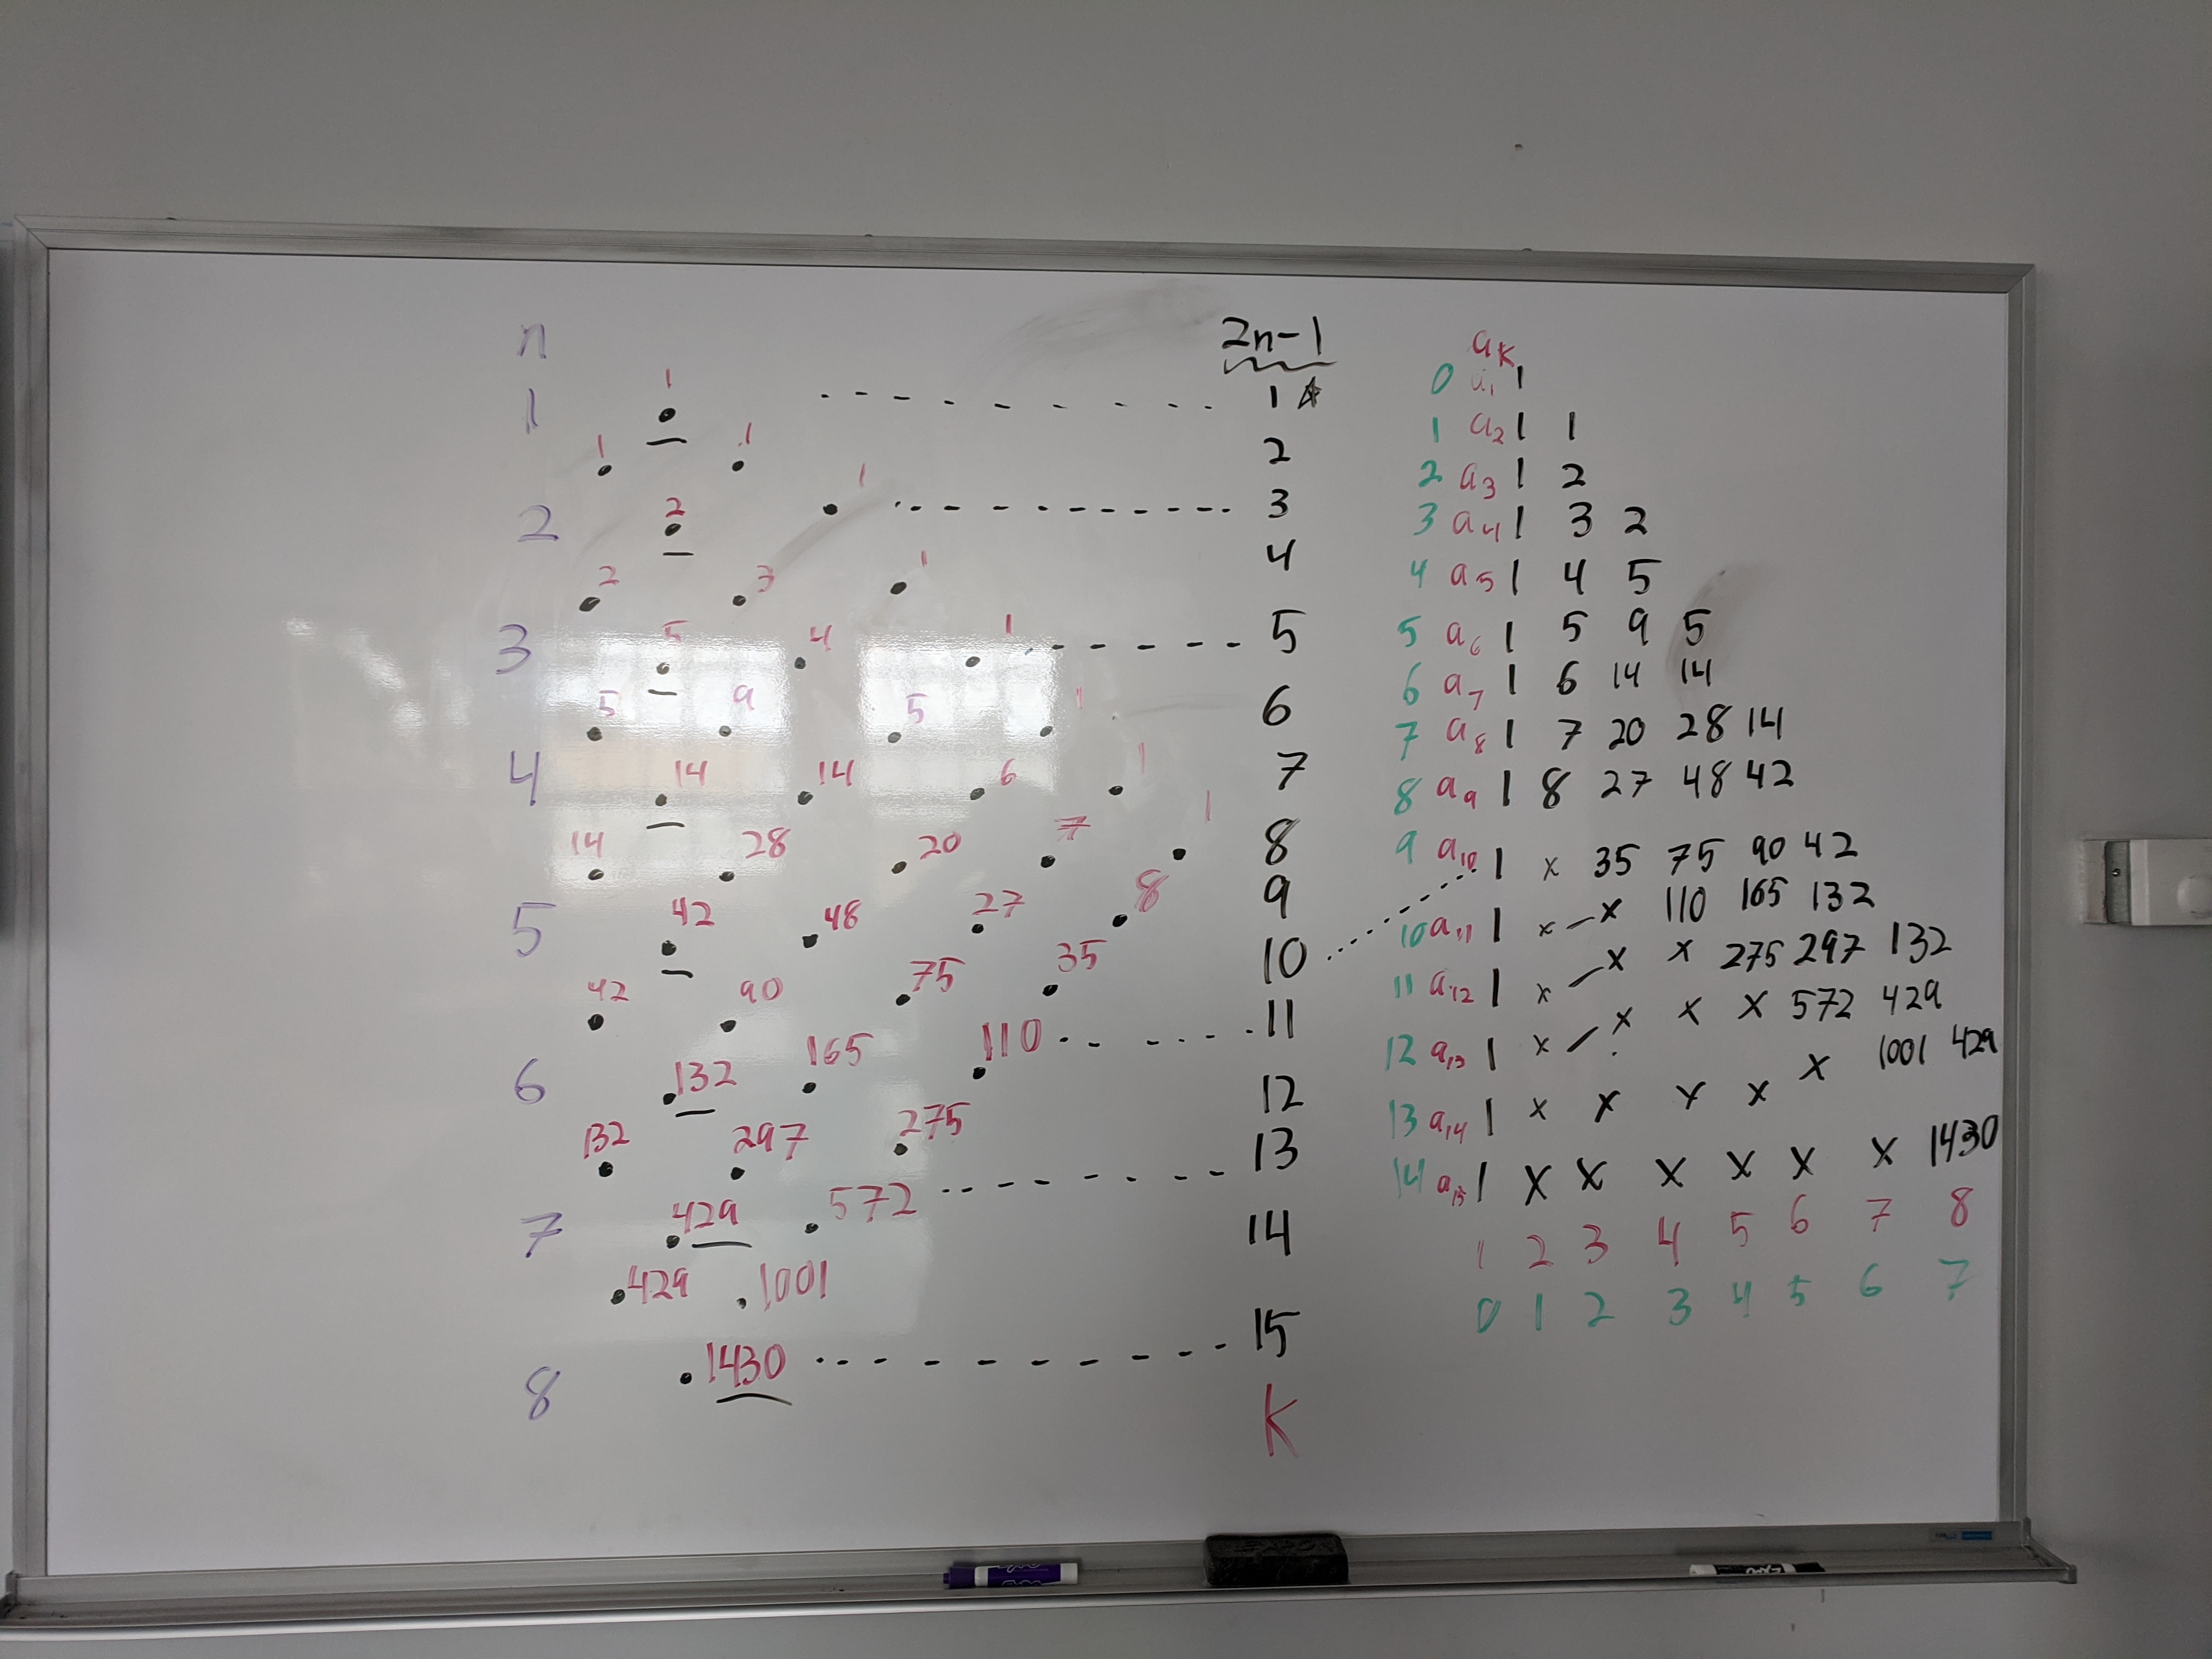 n
1
1
1 1
1
2
2
2 3 1
3
5 4 1
5 9 5 1
4
14 14 6 1
14 28 20 7 1
5
42 48 27 8
42 90 75 35
6
132 165 110
132 297 275
7
429 572
429 1001
8
1430
2n-1
1
2
3
4
5
6
7
8
9
10
11
12
13
14
15
K
aK
0 a1 1
1 a2 1 1
2 a3 1 2
3 a4 1 3 2
4 a5 1 4 5
5 a6 1 5 9 5
6 a7 1 6 14 14
7 a8 1 7 20 28 14
8 a9 1 8 27 48 42
9 a10 1 x 35 75 90 42
10 a11 1 x x 110 165 132
11 a12 1 x x x 275 297 132
12 a13 1 x x x x 572 429
13 a14 1 x x x x x 1001 429
14 a15 1 x x x x x x 1430
1 2 3 4 5 6 7 8
0 1 2 3 4 5 6 7